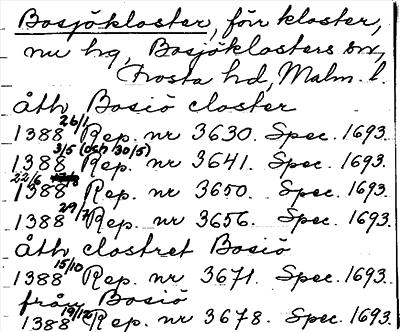 Bosjökloster, förr kloster,
nu hg, Bosjöklosters sn,
Frosta hd, Malm. l.
åth Bosiö closter
1388 26/1 Rep. nr 3630. Spec. 1693.
1388 3/5 (och 30/5) Rep. nr 3641. Spec. 1693.
1388 22/6 Rep. nr 3650. Spec. 1693.
1388 29/7 Rep. nr 3656. Spec. 1693.
åth clostret Bosiö
1388 15/10 Rep. nr 3671. Spec. 1693.
från Bosiö
1388 19/12 Rep. nr 3678. Spec. 1693.